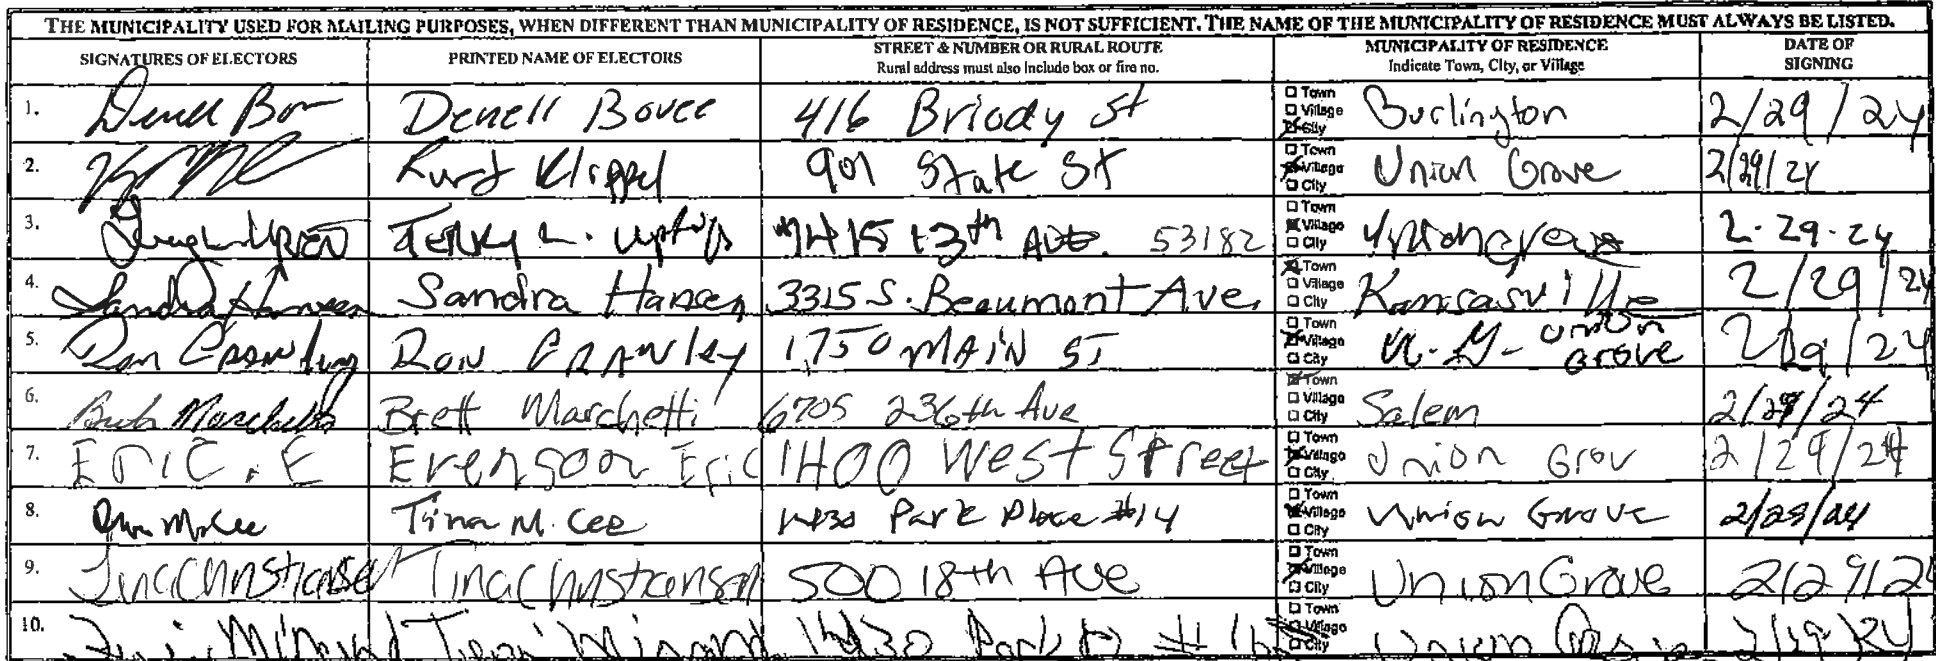 THE MUNICIPALITY USED FOR MAILING PURPOSES, WHEN DIFFERENT THAN MUNICIPALITY OF RESIDENCE, IS NOT SUFFICIENT. THE NAME OF THE MUNICIPALITY OF RESIDENCE MUST ALWAYS BE LISTED.
SIGNATURES OF ELECTORS PRINTED NAME OF ELECTORS STREET & NUMBER OR RURAL ROUTE MUNICIPALITY OF RESIDENCE DATE OF
Rural address must also include box or fire no. Indicate Town, City, or Village SIGNING
1. Denell Bovee 416 Briody St Town Village City Burlington 2/29/24
2. Kurt Klippel 901 State St Town Village City Union Grove 2/29/24
3. Terry L. 1415 13th Ave. 53182 Town Village City Union grove 2-29-24
4. Sandra Hansen Sandra Hansen 3315 S. Beaumont Ave. Town Village City Kansasville 2/29/24
5. Ron Crawley RON CRAWley 1750 MAIN ST Town Village City U.G- union Grove 2/29/24
6. Brett Marchetti Brett Marchetti 6705 236th Ave Town Village City Salem 2/29/24
7. ERIC . E Evensoon Eric 1400 West Street Town Village City Union Grov 2/29/24
8. Tina M. Cee Park Place #14 Town Village City Union Grove
9. Tina Christensen Tina Christensen 500 18th Ave Town Village City Union Grove 2/29/24
10. Town Village City Union 2/29/24